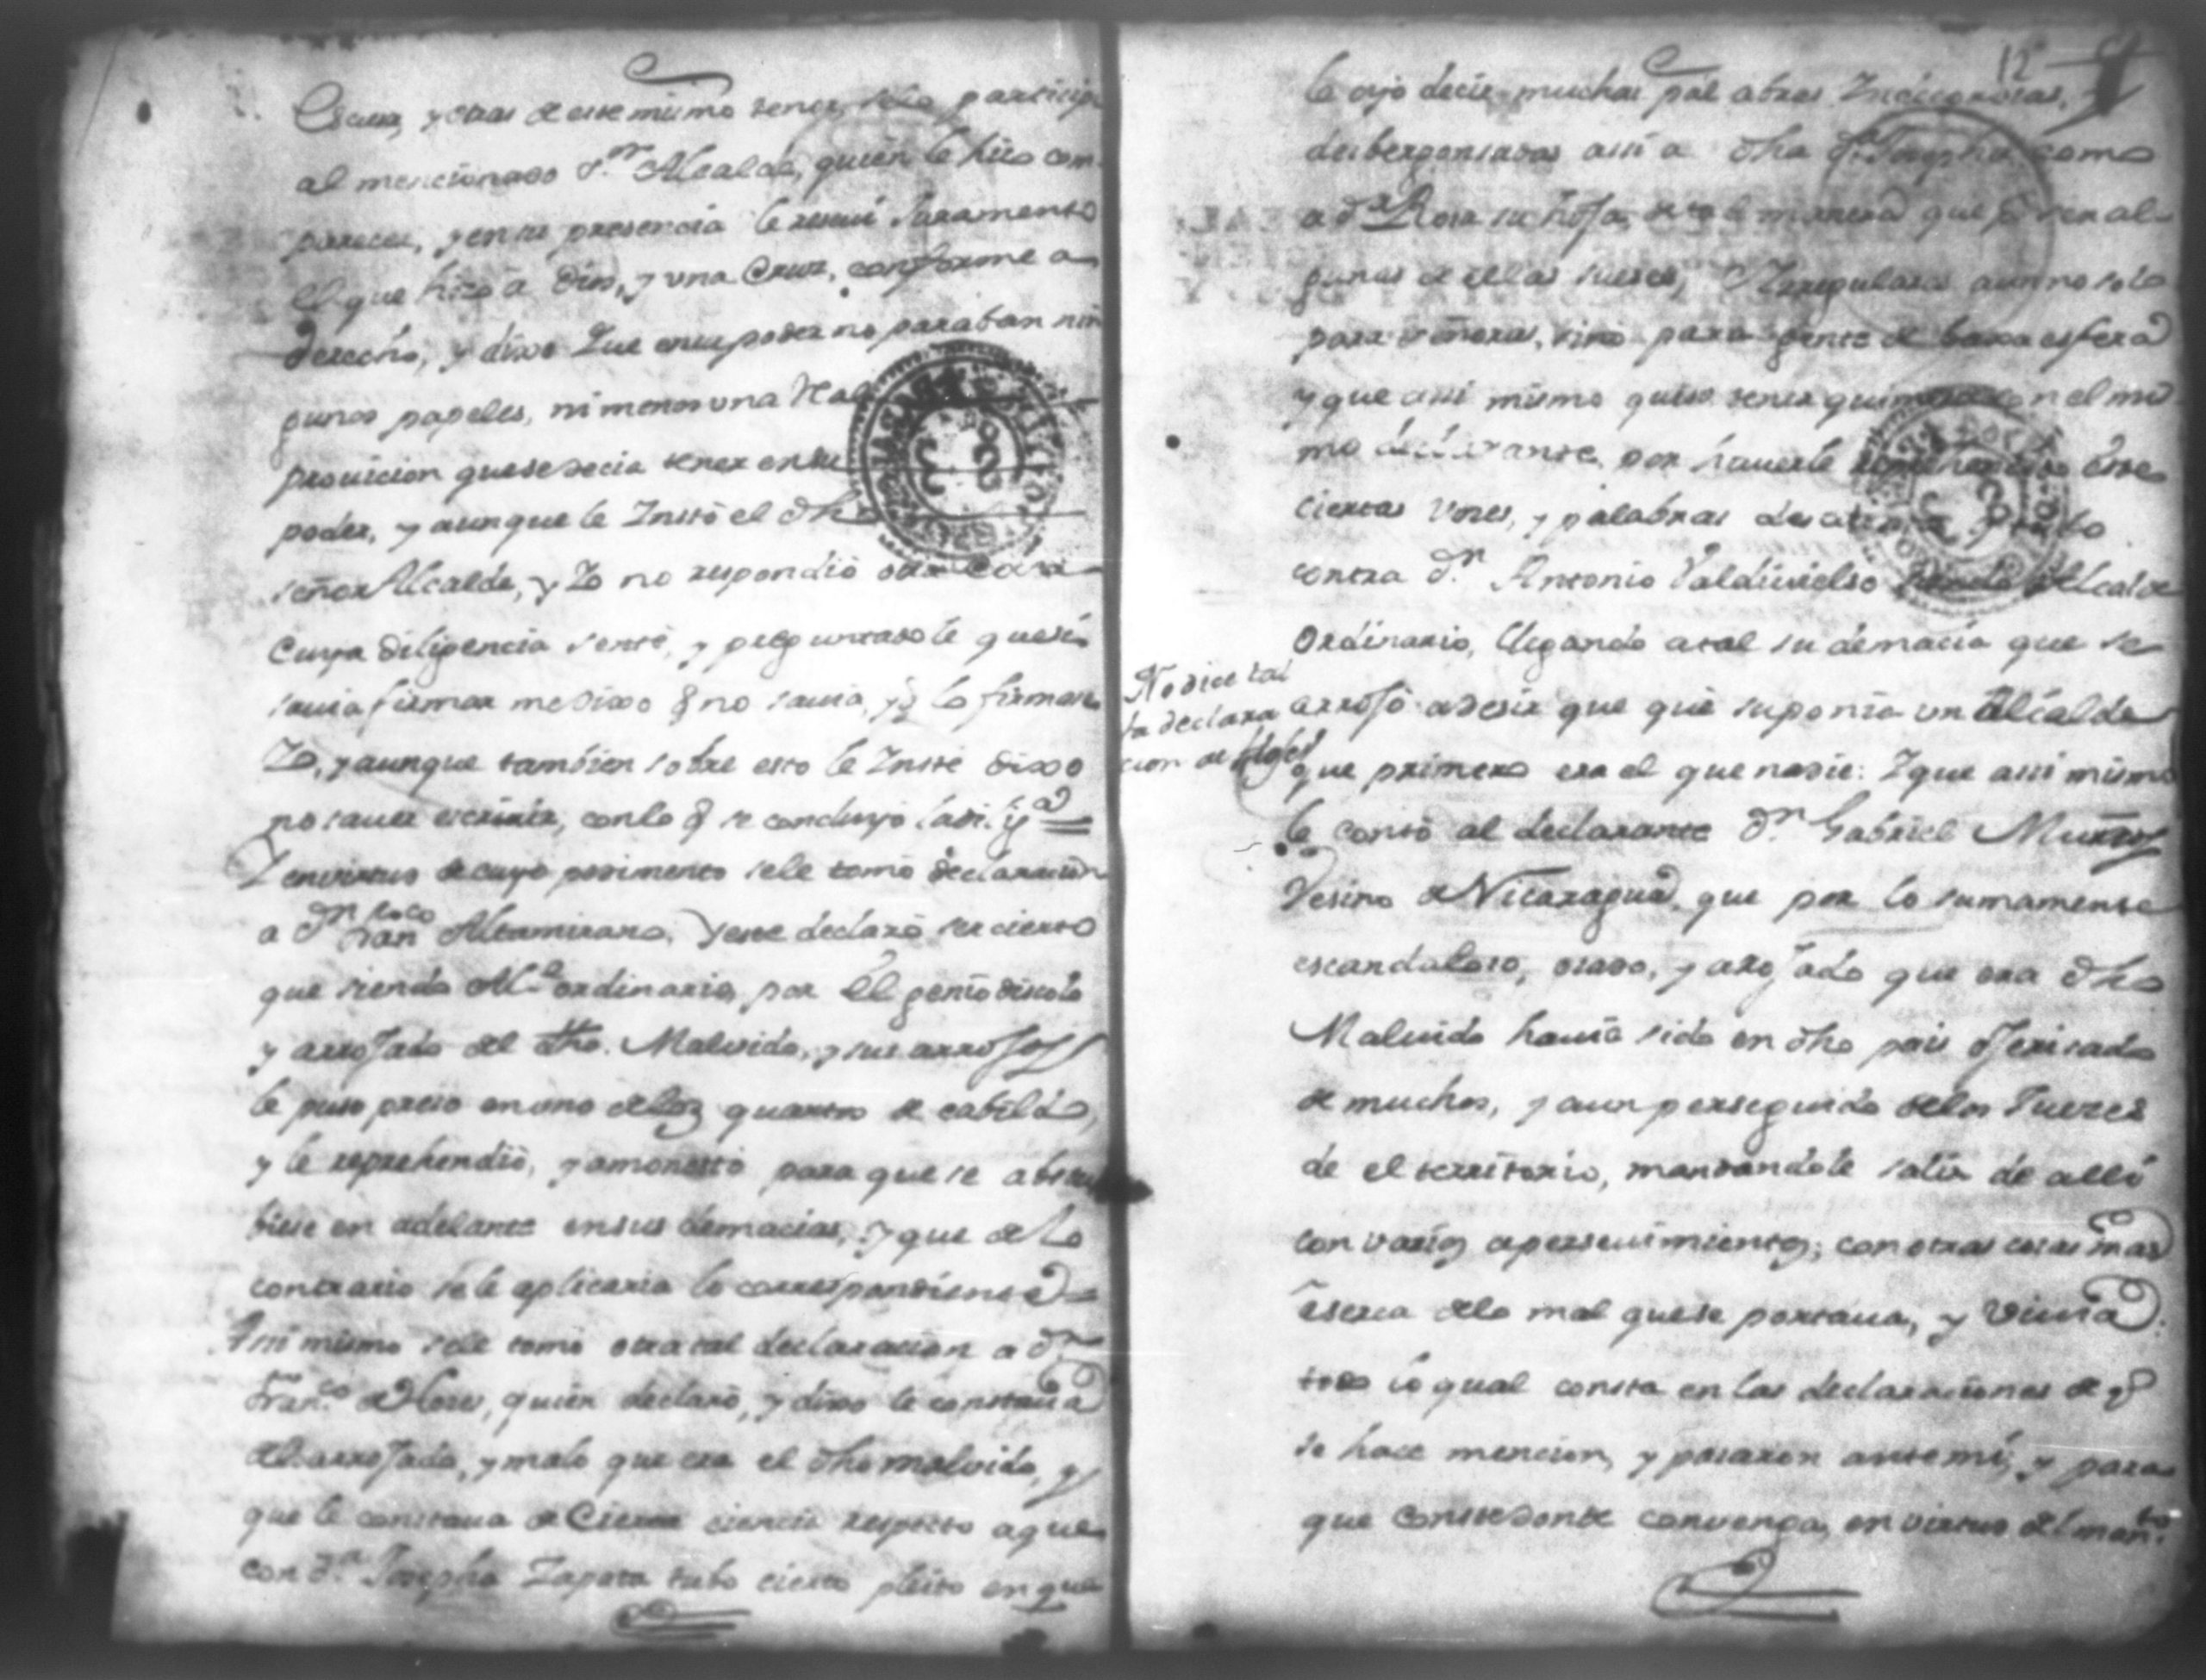 Causa, y otras de este mismo tenor, selo particip
al mencionado S.or Alcalde, quien le hizo com
parecer, y en su presencia le reciui Juramento
el que hizo á Dios, y una Cruz, conforme a
derecho, y dixo Que en su poder no paraban nin
gunos papeles, ni menos una Real
prouicion que se decia tener en su
poder, y aunque le Instó el dho
señor Alcalde, y Yo no respondió otra cosa
Cuya diligencia senté, y preguntadole que si
sauia firmar me dixo q̃ no sauia, y q̃ lo firmase
Yo, y aunque tambien sobre esto le Insté dixo
no sauer escriuir, con lo q̃ se concluyó la dilig.a =
Y en virtud de cuyo pedimento se le tomó declaracion
a D.n Fran.co Altamirano, y este declaró ser cierto
que siendo Al.e ordinario, por el genio discolo
y arrojado del dho. Malvido, y sus arrojos
le puso preso en uno de los quartos de cabildo,
y le reprehendió, y amonestó para que se abstu
biese en adelante en sus demacias, y que de lo
contrario se le aplicaria lo correspondiente =
Asi mismo se le tomó otra tal declaracion a D.n
Fran.co de Flores, quien declaró, y dixo le constaua
del arrojado, y malo que era el dho malvido, y
que le constaua de Cierta ciencia respecto a que
con D.a Josepha Zapata tubo cierto pleito en que
12
le oyo decir muchas palabras Indecorosas, y
desbergonsadas assi a dha D.a Josepha, como
a D.a Rosa su hija, de tal manera que p.r ser al
gunas de ellas sueses, Irregulares aun no solo
para señoras, sino para gente de baxa esfera
y que assi mismo quiso tener quimera con el mis
mo declarante, por hauerle reprehendido este
ciertas voces, y palabras
contra D.n Antonio Valdiuielso siendo Alcalde
Ordinario, llegando a tal su demacia que se
arrojó a desir que que suponia un Alcalde
que primero era el que nadie: Y que assi mismo
le contó al declarante D.n Gabriel Muñoz
Vesino de Nicaragua, que por lo sumamente
escandaloso, osado, y arrojado que era dho
Maluido hauia sido en dho pais
de muchos, y aun perseguido de los Jueces
de el territorio, mandandole salir de alli
con varios apersevimientos; con otras cosas mas
aserca de lo mal que se portaua, y viuia:
todo lo qual consta en las declaraciones de q̃
se hace mencion, y pasaron ante mi, y para
que conste donde convenga, en virtud del man.to
No dice tal
la declara
cion de